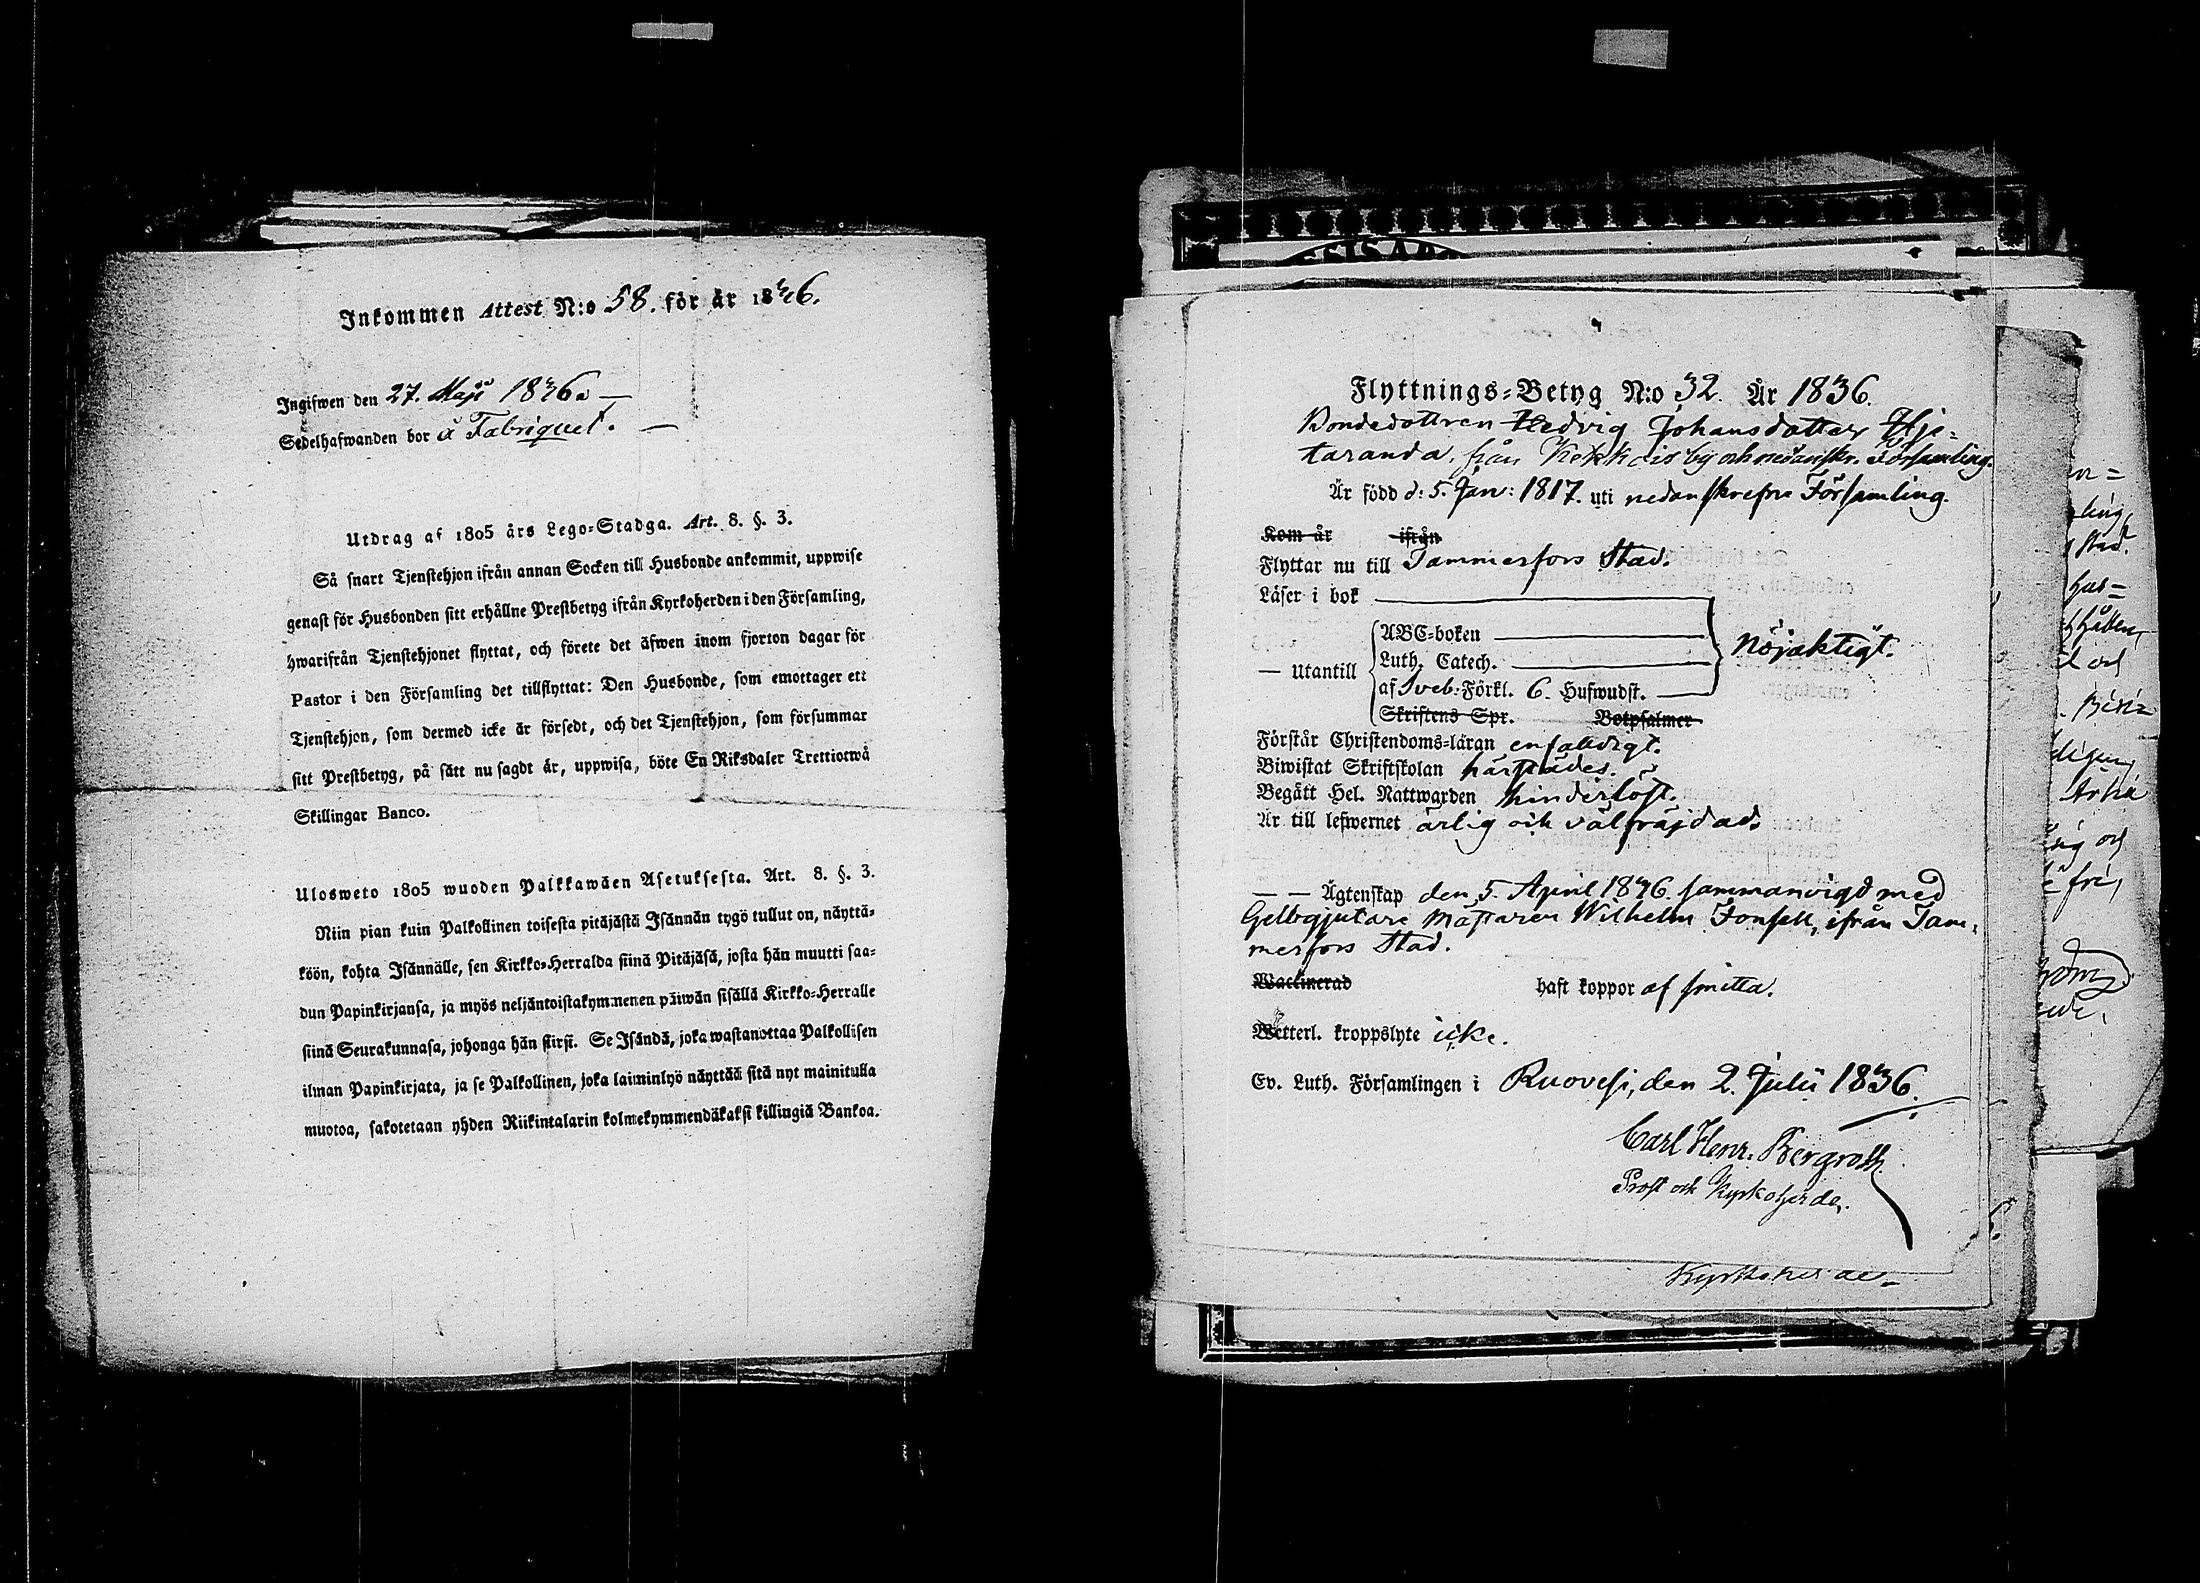 Inkommen Attest N:o 58. för år 1836.
Ingifwen den 27. Maji 1836. —
Sedelhafwanden bor å Fabriquet. —
Utdrag af 1805 års Lego-Stadga. Art. 8. §. 3.
Så snart Tjenstehjon ifrån annan Socken till Husbonde ankommit, uppwise
genast för Husbonden sitt erhållne Prestbetyg ifrån Kyrkoherden i den Församling,
hwarifrån Tjenstehjonet flyttat, och förete det äfwen inom fjorton dagar för
Pastor i den Församling det tillflyttat: Den Husbonde, som emottager ett
Tjenstehjon, som dermed icke är försedt, och det Tjenstehjon, som försummar
sitt Prestbetyg, på sätt nu sagdt är, uppwisa, böte En Riksdaler Trettiotwå
Skillingar Banco.
Ulosweto 1805 wuoden Palkkawäen Asetuksesta. Art. 8. §. 3.
Niin pian kuin Palkollinen toisesta pitäjästä Isännän tygö tullut on, näyttä-
köön, kohta Isännälle, sen Kirkko-Herralda siinä Pitäjäsä, josta hän muutti saa-
dun Papinkirjansa, ja myös neljäntoistakymmenen päiwän sisällä Kirkko-Herralle
siinä Seurakunnasa, johonga hän siirst. Se Isändä, joka wastanottaa Palkollisen
ilman Papinkirjata, ja se Palkollinen, joka laiminlyö näyttää sitä nyt mainitulla
muotoa, sakotetaan yhden Riikintalarin kolmekymmendäkaksi killingiä Bankoa.
Flyttnings-Betyg N:o 32. År 1836.
Bondedottren Hedvig Johansdotter Hje-
taranda, från Kekkois by och nedanskr. Församling.
Är född d: 5. Jan: 1817. uti nedanskrefne Församling.
Kom år ifrån
Flyttar nu till Tammerfors Stad.
Läser i bok
— utantill
ABC-boken
Luth. Catech.
af Sveb: Förkl. 6. Hufwudst.
Skriftens Spr. Botpsalmer
Nöjaktigt.
Förstår Christendoms-läran enfaldigt.
Biwistat Skriftskolan härstädes.
Begått Hel. Nattwarden hinderlöst.
Är till lefwernet ärlig och välfräjdad.
— — Ägtenskap den 5. April 1836. sammanvigd med
Gelbgjutare Mästaren Wilhelm Fonsell, ifrån Tam-
merfors Stad.
Waccinerad haft koppor af smitta.
Wetterl. kroppslyte icke.
Ev. Luth. Församlingen i Ruovesi, den 2. Julii 1836.
Carl Henr. Bergroth.
Prost och Kyrkoherde.
Kyrkoherde